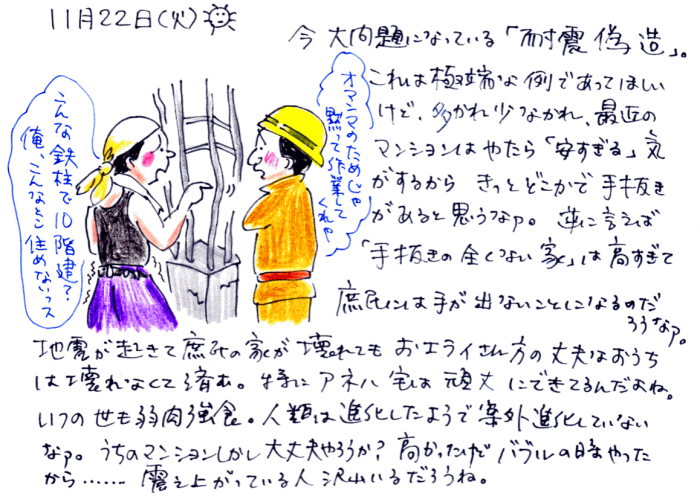 11月22日(火)
今 大問題になっている「耐震偽造」。
これは極端な例であってほしい
けど、多かれ少なかれ、最近の
マンションはやたら「安すぎる」気
がするから きっとどこかで手抜き
があると思うなァ。逆に言えば
「手抜きの全くない家」は高すぎて
庶民には手が出ないことになるのだ
ろうなァ。
こんな鉄柱で10階建て?
俺、こんなとこ住めないっス
オマンマのためじゃ
黙って作業して
くれや
地震が起きて庶民の家が壊れても おエライさん方の丈夫なおうち
は壊れなくて済む。特にアネハ宅は頑丈にできてるんだよね。
いつの世も弱肉強食。人類は進化したようで案外進化していない
なァ。うちのマンションしかし大丈夫やろうか? 高かったけど バブルの時やった
から…… 震え上がっている人 沢山いるだろうね。